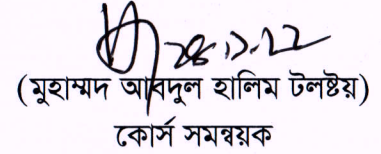 (মুহাম্মদ আবদুল হালিম টলষ্টয়)
কোর্স সমন্বয়ক